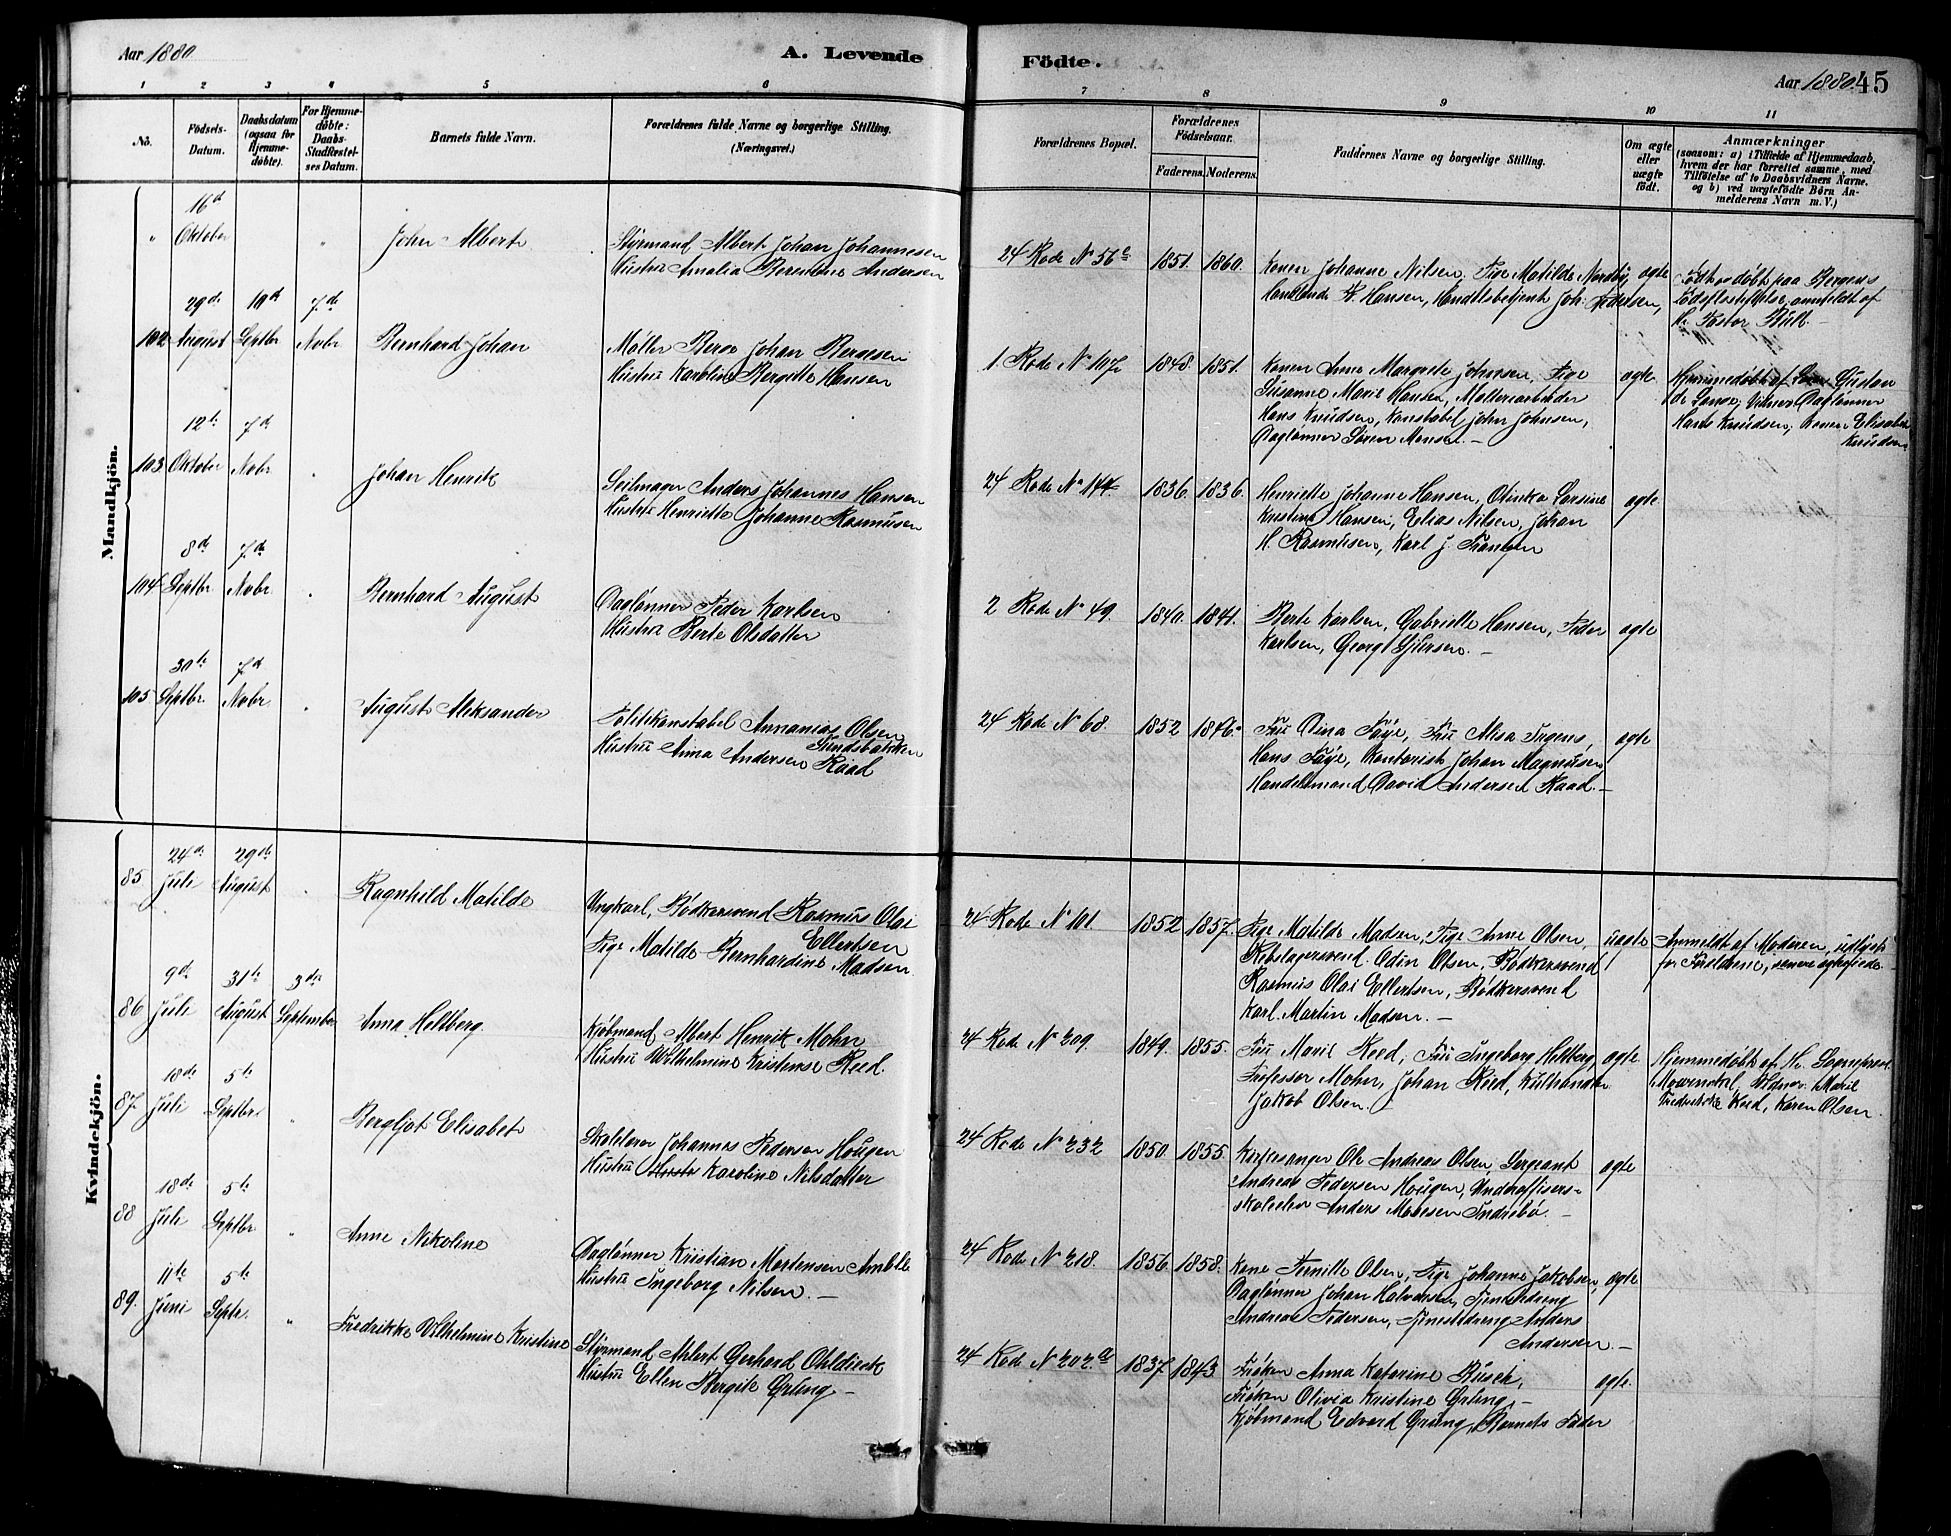 Aar 1880 A. Levende Födte. Aar 1880. 45
1 2 3 4 5 6 7 8 9 10 11
No.
Födsels-Datum.
Daabsdatum (ogsaa for Hjemme-døbte).
For Hjemme-døbte: Daabs-Stadfæstel-ses Datum.
Barnets fulde Navn.
Forældrenes fulde Navne og borgerlige Stilling.
(Næringsvei.)
Forældrenes Bopæl.
Forældrenes Födselsaar.
Faderens. Moderens.
Faddernes Navne og borgerlige Stilling.
Om ægte eller uægte födt.
Anmærkninger
(saasom: a) i Tilfælde af Hjemmedaab,
hvem der har forrettet samme, med
Tilföielse af to Daabsvidners Navne,
og b) ved uægtefödte Börn An-
melderens Navn m. V.)
Mandkjön.
" 16d Oktober " John Albert
Styrmand Albert Johan Johannesen
Hustru Amalia Andersen
24 Rode No 56c 1851. 1860.
Konen Johanne Nilsen, Pige Matilde
Hansen, Handelsbetjent Joh. Pedersen,
ægte
Født og døbt paa Bergens
Fødselsstiftelse, anmeldt af
Hr. Pastor Bull.
102 29de August 19d Septbr 7de Novbr Bernhard Johan
Møller Berge Johan Bergesen
Hustru Karoline Bergitte Hansen
1. Rode No 107 1848. 1851.
Konen Anne Margrete Johnsen, Pige
Susanne Marie Hansen, Møllerarbeider
Hans Knudsen, Konstabel John Johnsen,
Dagløner Søren Monsen. –
ægte
Hjemmedøbt af Gustav
de Lange; Vidner Dagløner
Hans Knudsen, Konen Elisabet
Knudsen
103 12te Oktober 7d Novbr " Johan Henrik
Seilmager Anders Johannes Hansen
Hustru Henriette Johanne Rasmussen
24 Rode No 144 1836. 1836.
Henriette Johanne Hansen, Olinka Larsine
Kristine Hansen, Elias Nilsen, Johan
H. Rasmussen, Karl J. Frantzen
ægte
104 8d Septbr 7de Novbr " Bernhard August
Dagløner Peder Karlsen
Hustru Berte Olsdatter
2 Rode No 49. 1840. 1841.
Berte Karlsen, Gabrielle Hansen, Peder
Karlsen, Georg –
ægte
105 30te Septbr. 7d Novbr. " August Aleksander
Politikonstabel Annanias Olsen
Sundsbakken
Hustru Anna Andersen Raad
24 Rode No 68. 1852 1846.
Fru Dina Føye, Fru Alisa Irgens,
Hans Føye, Kontorist Johan Magnusen,
Handelsmand David Andersen Raad. –
ægte
Kvindekjön.
85 24de Juli 29de August " Ragnhild Matilde
Ungkarl, Bødkersvend Rasmus Olai
Ellertsen
Pige Matilde Bernhardine Madsen.
24 Rode No 101. 1852 1857.
Pige Matilde Madsen, Pige Anne Olsen,
Rebslagersvend Odin Olsen, Bødkersvend
Rasmus Olai Ellertsen, Bødkersvend
Karl Martin Madsen. –
uægte
Anmeldt af Moderen, udlyst
for Forældrene, senere ægteviede.
86 9d Juli 31te August 3de September Anna Heltberg.
Kjøbmand Albert Henrik Mohn
Hustru Wilhelmine Kristense Reed.
24 Rode No 209. 1849. 1855.
Fru Marie Reed, Fru Ingeborg Heltberg,
Professor Mohn, Johan Reed, Kulhandler
Jakob Olsen. –
ægte
Hjemmedøbt af Hr. Sogneprest
Mowinckel, Vidner: Marie
Fredrikke Reed, Karen Olsen.
87. 18de Juli 5te Septbr. " Bergljot Elisabet
Skolelærer Johannes Pedersen Hougen
Hustru Karoline Nilsdatter
24 Rode No 232 1850. 1855.
Kirkesanger Ole Andreas Olsen, Sergeant
Andreas Pedersen Hougen, Underoffisers-
skoleelev Anders Mobesen Indrebø. –
ægte
88 18de Juli 5te Septbr " Anne Nikoline
Dagløner Kristian Mortensen Amble
Hustru Ingeborg Nilsen. –
24 Rode No 218. 1856. 1858.
Kone Pernille Olsen, Pige Johanne Jakobsen,
Dagløner Johan Halvorsen, Tjenestedreng
Andreas Pedersen, Tjenestedreng Anders
Andersen. –
ægte
89. 11te Juni 5te Septr. " Fredrikke Vilhelmine Kristine
Styrmand Ahlert Gerhard Ohldieck
Hustru Ellen Bergite Grung –
24 Rode No 202a 1837. 1843.
Frøken Anna Katarine Busch,
Frøken Olivia Kristine Grung, –
Kjøbmand Edvard Grung, Barnets Fader
ægte.